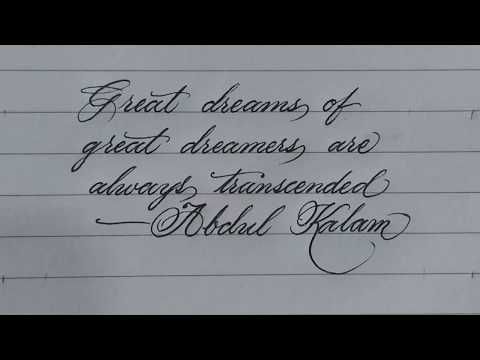 Great dreams of
great dreamers are
always transcended
—Abdul Kalam